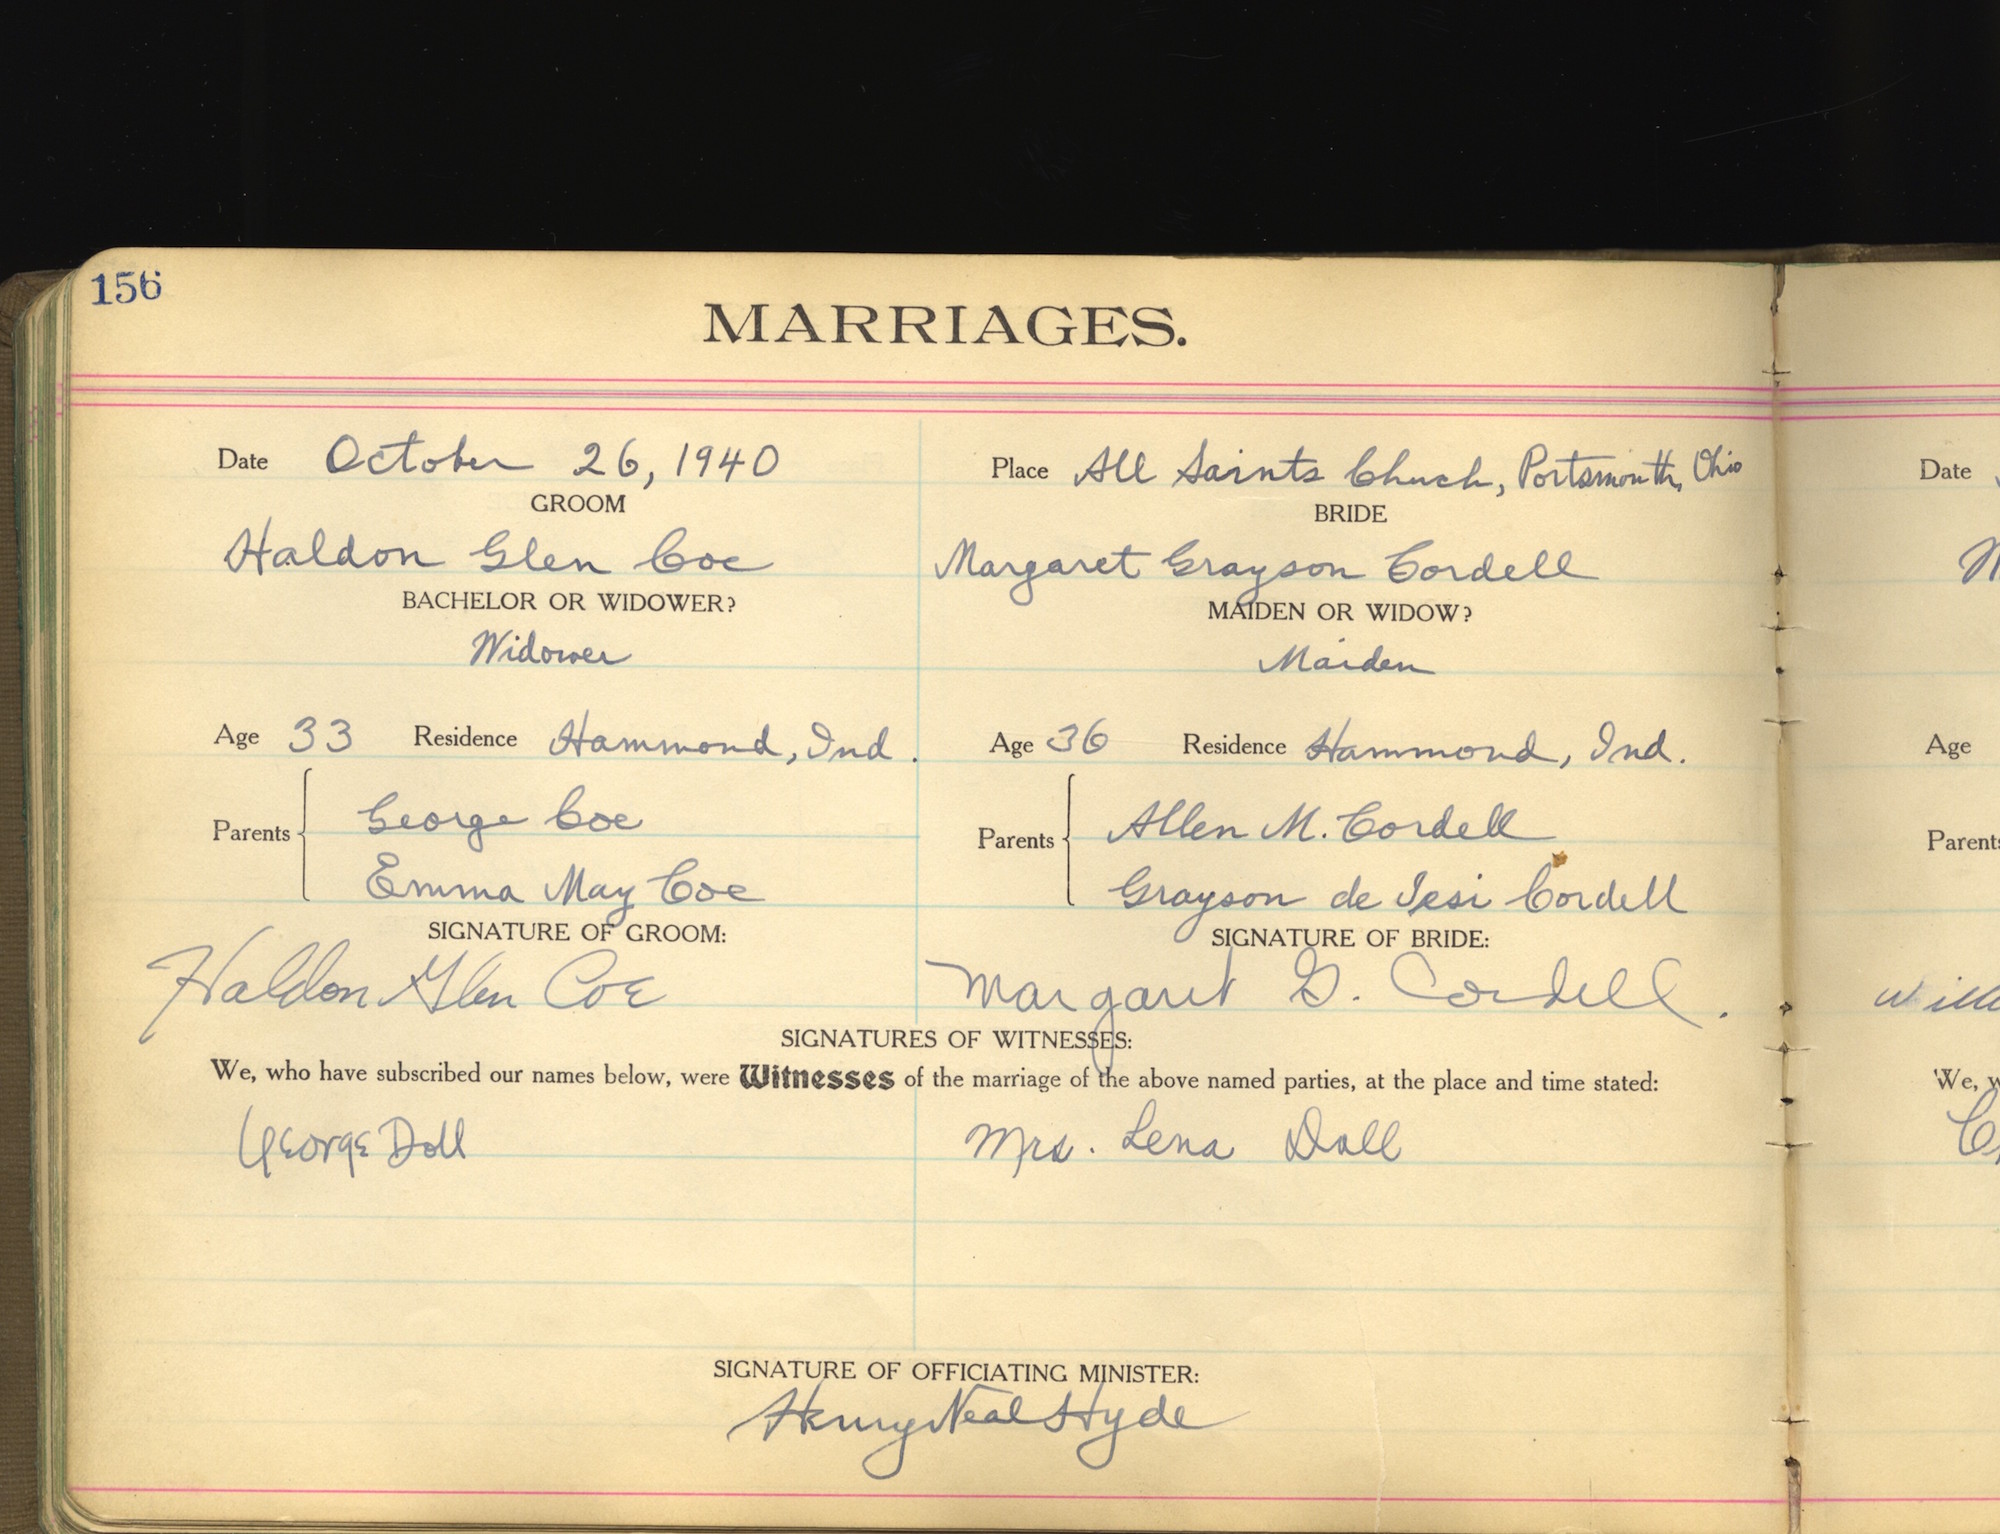 156
MARRIAGES.
Date October 26, 1940
Place All Saints Chuch, Portsmouth, Ohio
GROOM
BRIDE
Haldon Glen Coe
Margaret Grayson Cordell
BACHELOR OR WIDOWER?
MAIDEN OR WIDOW?
Widower
Maiden
Age 33 Residence Hammond, Ind.
Age 36 Residence Hammond, Ind.
Parents
George Coe
Emma May Coe
Parents
Allen M. Cordell
Grayson de Cordell
SIGNATURE OF GROOM:
SIGNATURE OF BRIDE:
Haldon Glen Coe
Margaret G. Cordell.
SIGNATURES OF WITNESSES:
We, who have subscribed our names below, were Witnesses of the marriage of the above named parties, at the place and time stated:
George Doll
Mrs. Lena Doll
SIGNATURE OF OFFICIATING MINISTER:
Henry Neal Hyde
Date
Age
Parents
We,